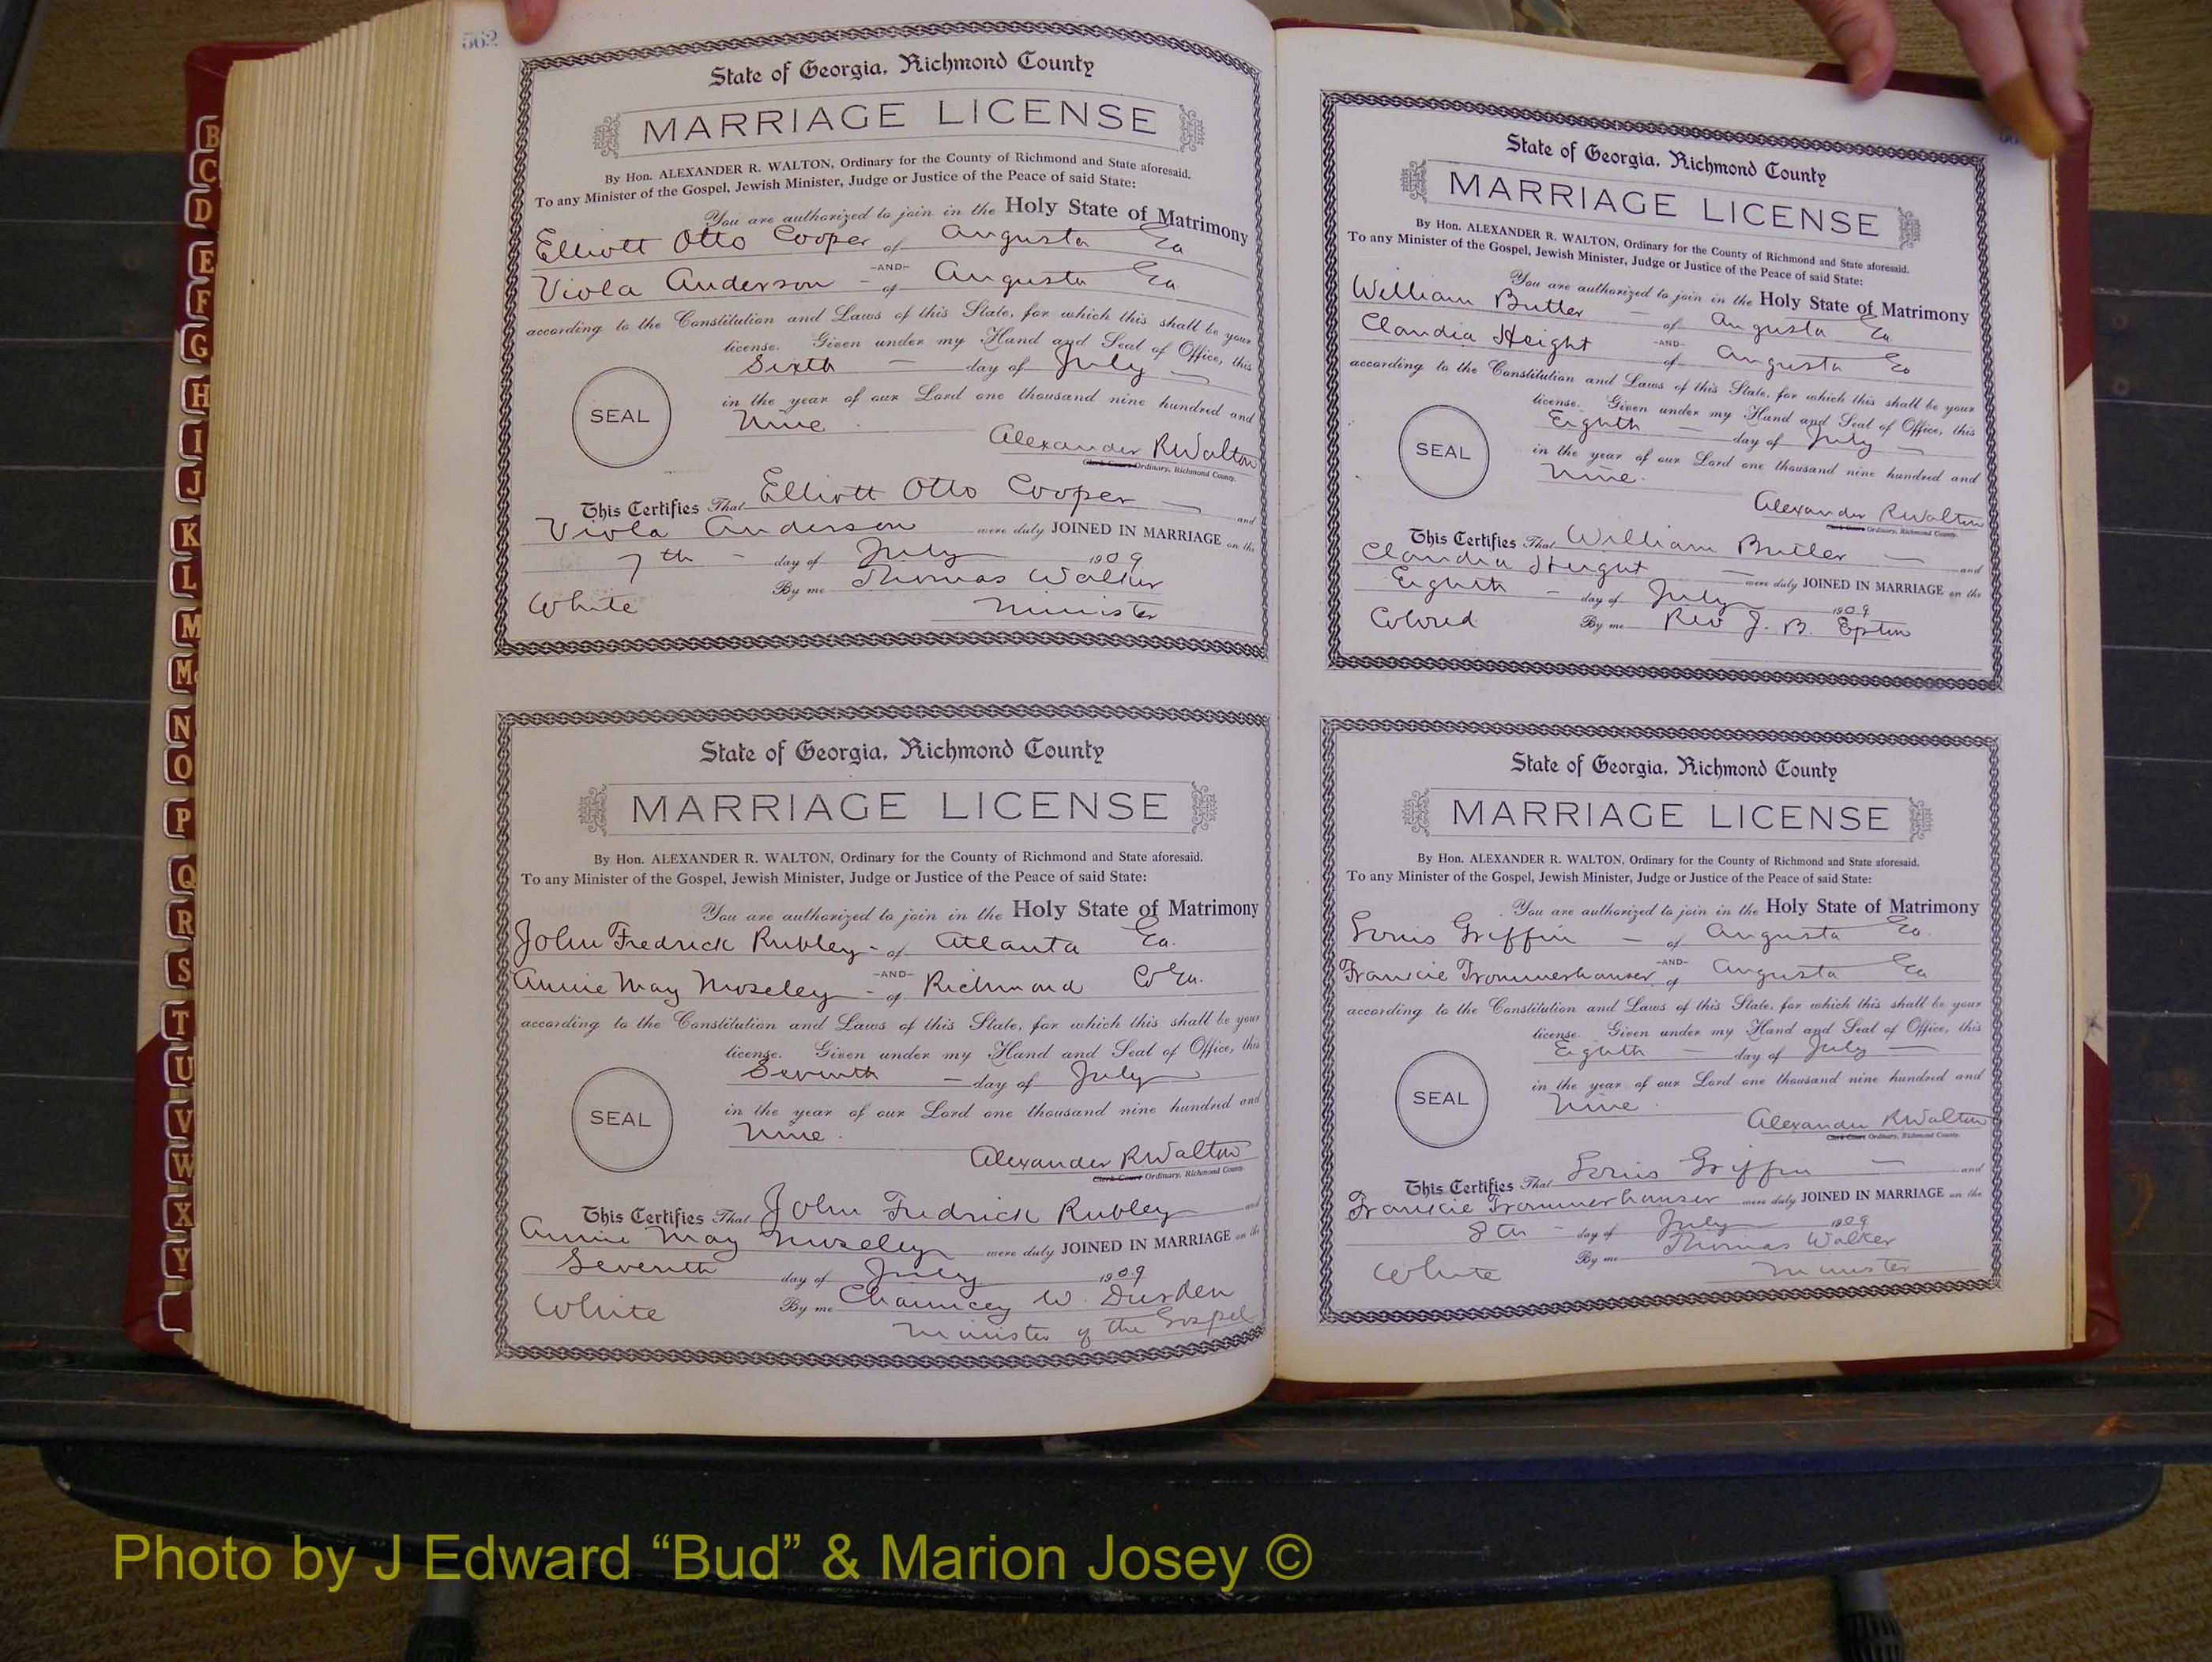 562
State of Georgia, Richmond County
MARRIAGE LICENSE
By Hon. ALEXANDER R. WALTON, Ordinary for the County of Richmond and State aforesaid.
To any Minister of the Gospel, Jewish Minister, Judge or Justice of the Peace of said State:
You are authorized to join in the Holy State of Matrimony
Elliott Otto Cooper of Augusta Ga
-AND-
Viola Anderson - of Augusta Ga
according to the Constitution and Laws of this State, for which this shall be your
license. Given under my Hand and Seal of Office, this
Sixth — day of July —
in the year of our Lord one thousand nine hundred and
SEAL
Nine.
Alexander R Walton
Clerk Court Ordinary, Richmond County.
This Certifies That Elliott Otto Cooper — and
Viola Anderson were duly JOINED IN MARRIAGE on the
7th - day of July 1909
By me Thomas Walker
White Minister
State of Georgia, Richmond County
MARRIAGE LICENSE
By Hon. ALEXANDER R. WALTON, Ordinary for the County of Richmond and State aforesaid.
To any Minister of the Gospel, Jewish Minister, Judge or Justice of the Peace of said State:
You are authorized to join in the Holy State of Matrimony
John Fredrick Rubley - of Atlanta Ga.
-AND-
Annie May Moseley - of Richmond Co Ga.
according to the Constitution and Laws of this State, for which this shall be your
license. Given under my Hand and Seal of Office, this
Seventh — day of July
in the year of our Lord one thousand nine hundred and
SEAL
Nine.
Alexander R Walton
Clerk Court Ordinary, Richmond County.
This Certifies That John Fredrick Rubley and
Annie May Moseley were duly JOINED IN MARRIAGE on the
Seventh day of July 1909
By me Chauncey W. Durden
White Minister of the Gospel
State of Georgia, Richmond County
MARRIAGE LICENSE
By Hon. ALEXANDER R. WALTON, Ordinary for the County of Richmond and State aforesaid.
To any Minister of the Gospel, Jewish Minister, Judge or Justice of the Peace of said State:
You are authorized to join in the Holy State of Matrimony
William Butler — of Augusta Ga.
-AND-
Claudia Height of Augusta Ga
according to the Constitution and Laws of this State, for which this shall be your
license. Given under my Hand and Seal of Office, this
Eighth — day of July —
in the year of our Lord one thousand nine hundred and
SEAL
Nine.
Alexander R Walton
Clerk Court Ordinary, Richmond County.
This Certifies That William Butler — and
Claudia Height were duly JOINED IN MARRIAGE on the
Eighth - day of July 1909
By me Rev J. B.
Colored
State of Georgia, Richmond County
MARRIAGE LICENSE
By Hon. ALEXANDER R. WALTON, Ordinary for the County of Richmond and State aforesaid.
To any Minister of the Gospel, Jewish Minister, Judge or Justice of the Peace of said State:
You are authorized to join in the Holy State of Matrimony
Louis Griffin — of Augusta Ga.
-AND-
Francie Trommerhauser of Augusta Ga
according to the Constitution and Laws of this State, for which this shall be your
license. Given under my Hand and Seal of Office, this
Eighth — day of July —
in the year of our Lord one thousand nine hundred and
SEAL
Nine.
Alexander R Walton
Clerk Court Ordinary, Richmond County.
This Certifies That Louis Griffin — and
Francie Trommerhauser were duly JOINED IN MARRIAGE on the
8th - day of July 1909
By me Thomas Walker
White Minister
B
C
D
E
F
G
H
I
J
K
L
M
Mc
N
O
P
Q
R
S
T
U
V
W
X
Y
Photo by J Edward “Bud” & Marion Josey ©